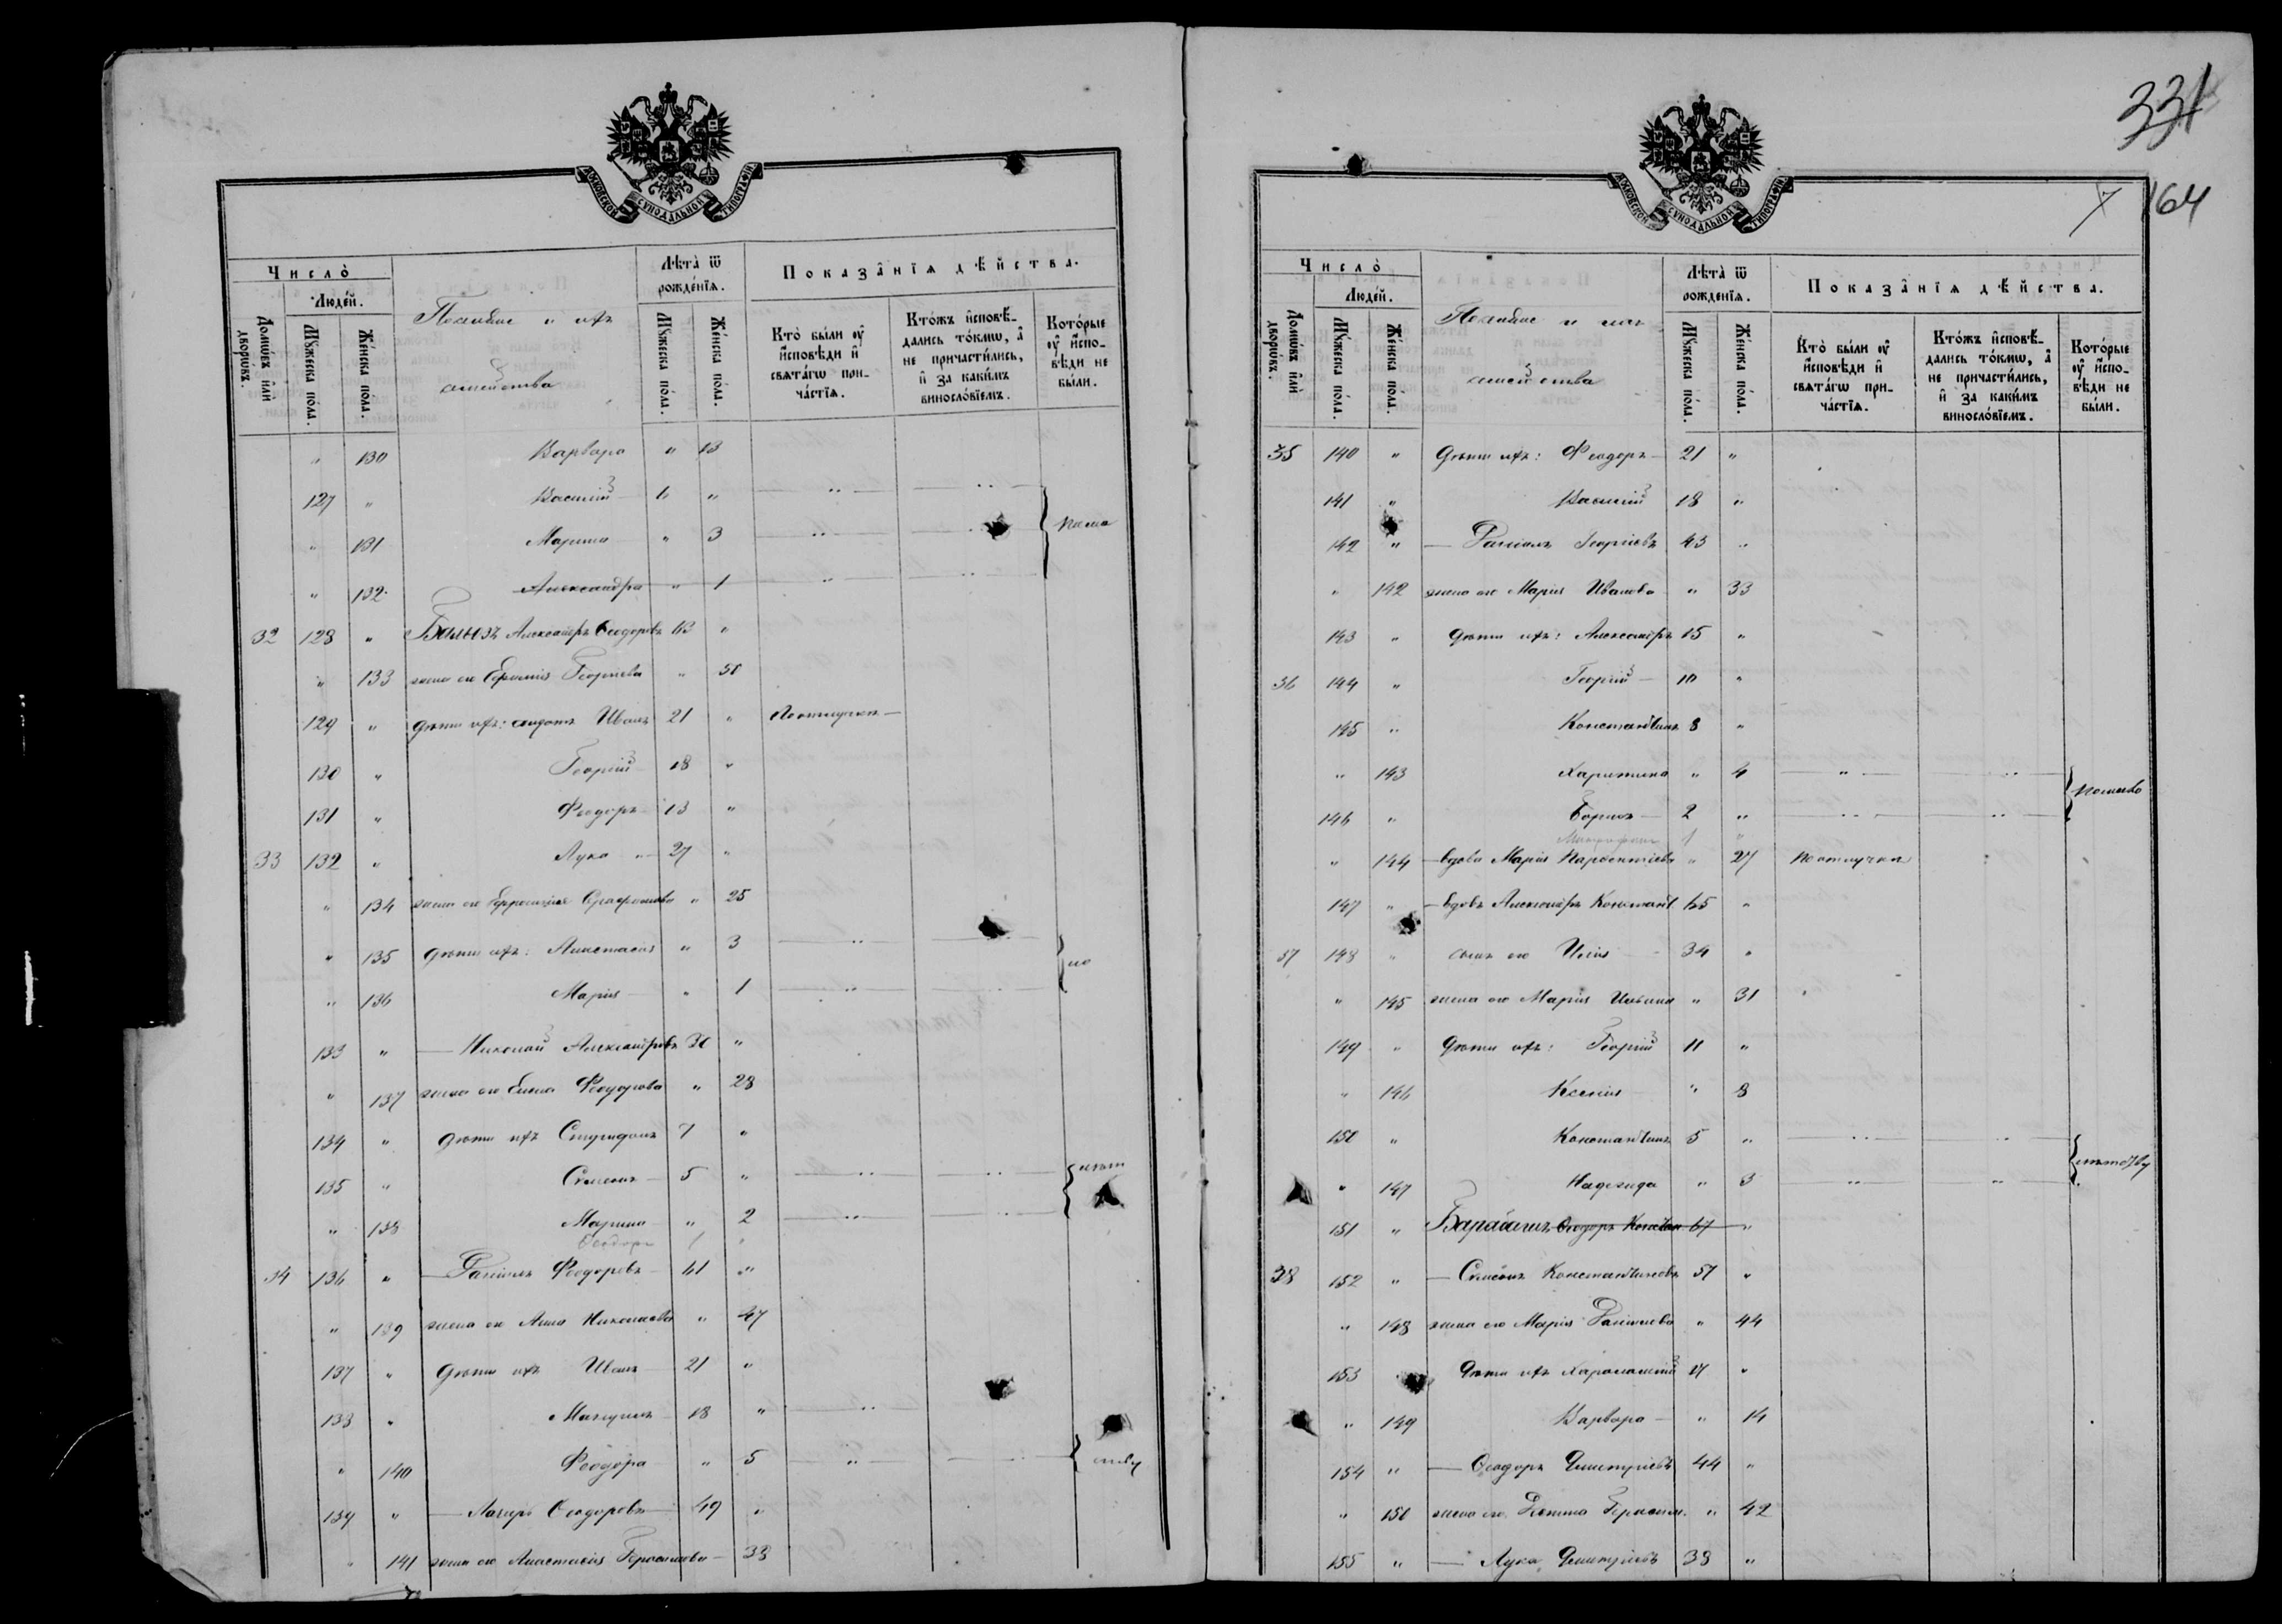 331
164
МОСКОВСКОЙ СУНОДАЛЬНОЙ ТИПОГРАФІИ
Число̀
Люде́й.
Домѡ́въ и҆лѝ дворѡ́въ.
Мꙋ́жеска по́ла.
Же́нска по́ла.
семейства
Лѣ́та ѿ рожде́нїѧ.
Мꙋ́жеска по́ла.
Же́нска по́ла.
Показа̂нїѧ дѣ́йства.
Кто̀ бы́ли ᲂу҆ и҆спо́вѣди и҆ свѧта́гѡ прича́стїѧ.
Кто́жъ и҆сповѣ́дались то́кмѡ, а҆ не причасти́лись, и҆ за каки́мъ винословїемъ.
Кото́рые ᲂу҆ и҆спо́вѣди не бы́ли.
" 130 Варвара " 13
127 " Василій 6 "
" 131 Марина " 3
" 132 Александра " 1
32 128 " Бальозъ Александръ Ѳеодоровъ 63 "
" 133 жена его Евфимія Георгіева " 50
129 " дѣти ихъ: солдатъ Иванъ 21 " По отлучкѣ
130 " Георгій 18 "
131 " Феодоръ 13 "
33 132 " Лука 27 "
" 134 жена его Евфросинія " 25
" 135 дѣти ихъ: Анастасія " 3
" 136 Марія " 1 по
133 " Николай Александровъ 30 "
" 137 жена его Елена Феодорова " 28
134 " дѣти ихъ Спиридонъ 7 "
135 " Симеонъ 5 "
" 138 Марина " 2
Ѳеодоръ 1 "
34 136 " Даніилъ Феодоровъ 61 "
" 139 жена его Анна Николаева " 47
137 " дѣти ихъ Иванъ 21 "
138 " 18 "
" 140 Феодора " 5
139 " Лазарь Ѳеодоровъ 49 "
" 141 жена его Анастасія Герасимова 38
МОСКОВСКОЙ СУНОДАЛЬНОЙ ТИПОГРАФІИ
Число̀
Люде́й.
Домѡ́въ и҆лѝ дворѡ́въ.
Мꙋ́жеска по́ла.
Же́нска по́ла.
семейства
Лѣ́та ѿ рожде́нїѧ.
Мꙋ́жеска по́ла.
Же́нска по́ла.
Показа̂нїѧ дѣ́йства.
Кто̀ бы́ли ᲂу҆ и҆спо́вѣди и҆ свѧта́гѡ прича́стїѧ.
Кто́жъ и҆сповѣ́дались то́кмѡ, а҆ не причасти́лись, и҆ за каки́мъ винословїемъ.
Кото́рые ᲂу҆ и҆спо́вѣди не бы́ли.
35 140 " Дѣти ихъ: Феодоръ 21 "
141 " Василій 18 "
142 " Даніилъ Георгіевъ 43 "
" 142 жена его Марія Иванова " 33
143 " дѣти ихъ: Александръ 15 "
36 144 " Георгій 10 "
145 " Константинъ 8 "
" 143 Харитина " 4
146 " Борисъ 2 "
1 "
" 144 вдова Марія Парѳентіева " 27 По отлучкѣ
147 " вдовъ Александръ Констант. 65 "
37 148 " сынъ его Илія 34 "
" 145 жена его Марія Ильина " 31
149 " Дѣти ихъ: Георгій 11 "
" 146 Ксенія " 8
150 " Константинъ 5 "
" 147 Надежда " 3
151 " Ѳеодоръ Констан. 67 "
38 152 " Симеонъ Константиновъ 57 "
" 148 жена его Марія Даніилова " 44
153 Дѣти ихъ Харлампій 17 "
" 149 Варвара " 14
154 " Ѳеодоръ Димитріевъ 44 "
" 150 жена его Герасим. " 42
155 " Лука Димитріевъ 38 "